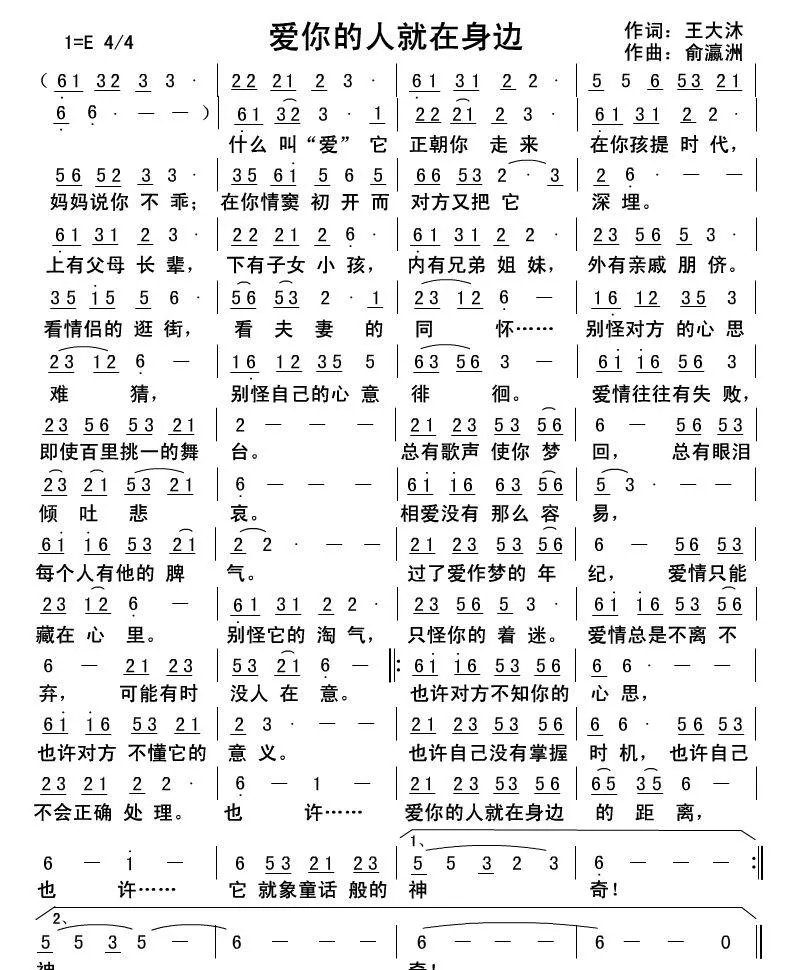 爱你的人就在身边
1=E 4/4
作词：王大沐
作曲：俞瀛洲
（ 61 32 3 3 · | 22 21 2 3 · | 61 31 2 2 · | 5 5 6 53 21
6 6 · — — ） | 61 32 3 · 1 | 22 21 2 3 · | 61 31 2 2 · |
什么 叫“爱” 它 正朝你 走 来 在你孩提 时 代，
56 52 3 3 · | 35 61 5 6 5 | 66 53 2 · 3 | 2 6 · — |
妈妈说你 不 乖； 在你情窦 初 开 而 对方又把 它 深 埋。
61 31 2 3 · | 22 21 2 6 · | 61 31 2 2 · | 23 56 5 3 · |
上有父母 长 辈， 下有子女 小 孩， 内有兄弟 姐 妹， 外有亲戚 朋 侪。
35 15 5 6 · | 56 53 2 · 1 | 23 12 6 — | 16 12 35 3 |
看情侣的 逛 街， 看 夫 妻 的 同 怀…… 别怪对方 的心 思
23 12 6 — | 16 12 35 5 | 63 56 3 — | 61 16 56 3 |
难 猜， 别怪自己的心 意 徘 徊。 爱情往往有失 败，
23 56 53 21 | 2 — — — | 21 23 53 56 | 6 — 56 53 |
即使百里挑一的舞 台。 总有歌声 使你 梦 回， 总有眼泪
23 21 53 21 | 6 — — — | 61 16 63 56 | 5 3 · — — |
倾 吐 悲 哀。 相爱没有 那么 容 易，
61 16 53 21 | 2 2 · — — | 21 23 53 56 | 6 — 56 53 |
每个人有他的 脾 气。 过了爱作梦的 年 纪， 爱情只能
23 12 6 — | 61 31 2 2 · | 23 56 5 3 · | 61 16 53 56 |
藏在 心 里。 别怪它的 淘 气， 只怪你的 着 迷。 爱情总是不离 不
6 — 21 23 | 53 21 6 — ‖: 61 16 53 56 | 6 6 · — |
弃， 可能有时 没人 在 意。 也许对方不知你的 心 思，
61 16 53 21 | 2 3 · — — | 21 23 53 56 | 6 6 · 56 53 |
也许对方 不懂它的 意 义。 也许自己没有掌握 时 机， 也许自己
23 21 2 2 · | 6 — 1 — | 21 23 53 56 | 65 35 6 — |
不会正确 处 理。 也 许…… 爱你的人就在身边 的 距 离，
1、
6 — 1 — | 6 53 21 23 | 5 5 3 2 3 | 6 — — — :‖
也 许…… 它 就象童话 般的 神 奇！
2、
5 5 3 5 — | 6 — — — | 6 — — — | 6 — — 0
神 奇！